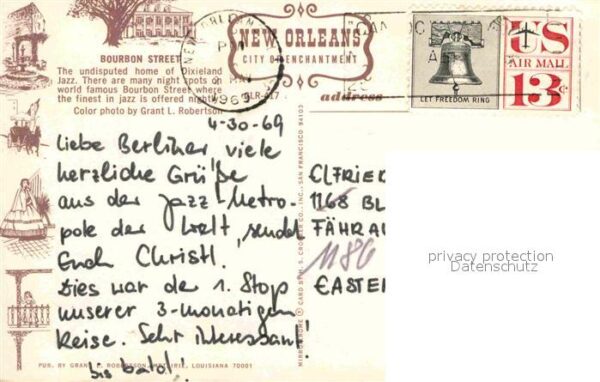 BOURBON STREET
The undisputed home of Dixieland
Jazz. There are many night spots on
world famous Bourbon Street where
the finest in jazz is offered nightly.
Color photo by Grant L. Robertson
NEW ORLEANS
CITY OF ENCHANTMENT
address
NEW ORLEANS
PM
1969
LET FREEDOM RING
US
AIR MAIL
13c
4-30-69
Liebe Berliner viele
herzliche Grüße
aus der Jazz-Metro-
pole der Welt, sendet
Euch Christl.
Dies war der 1. Stop
unserer 3-monatigen
Reise. Sehr interessant!
bis bald!
ELFRIED
1168 BL
FÄHRAL
1186
EASTER
privacy protection
Datenschutz
MIRRO-KROME ® CARD BY H. S. CROCKER CO., INC., SAN FRANCISCO 94103
PUB. BY GRANT L. ROBERTSON, METAIRIE, LOUISIANA 70001